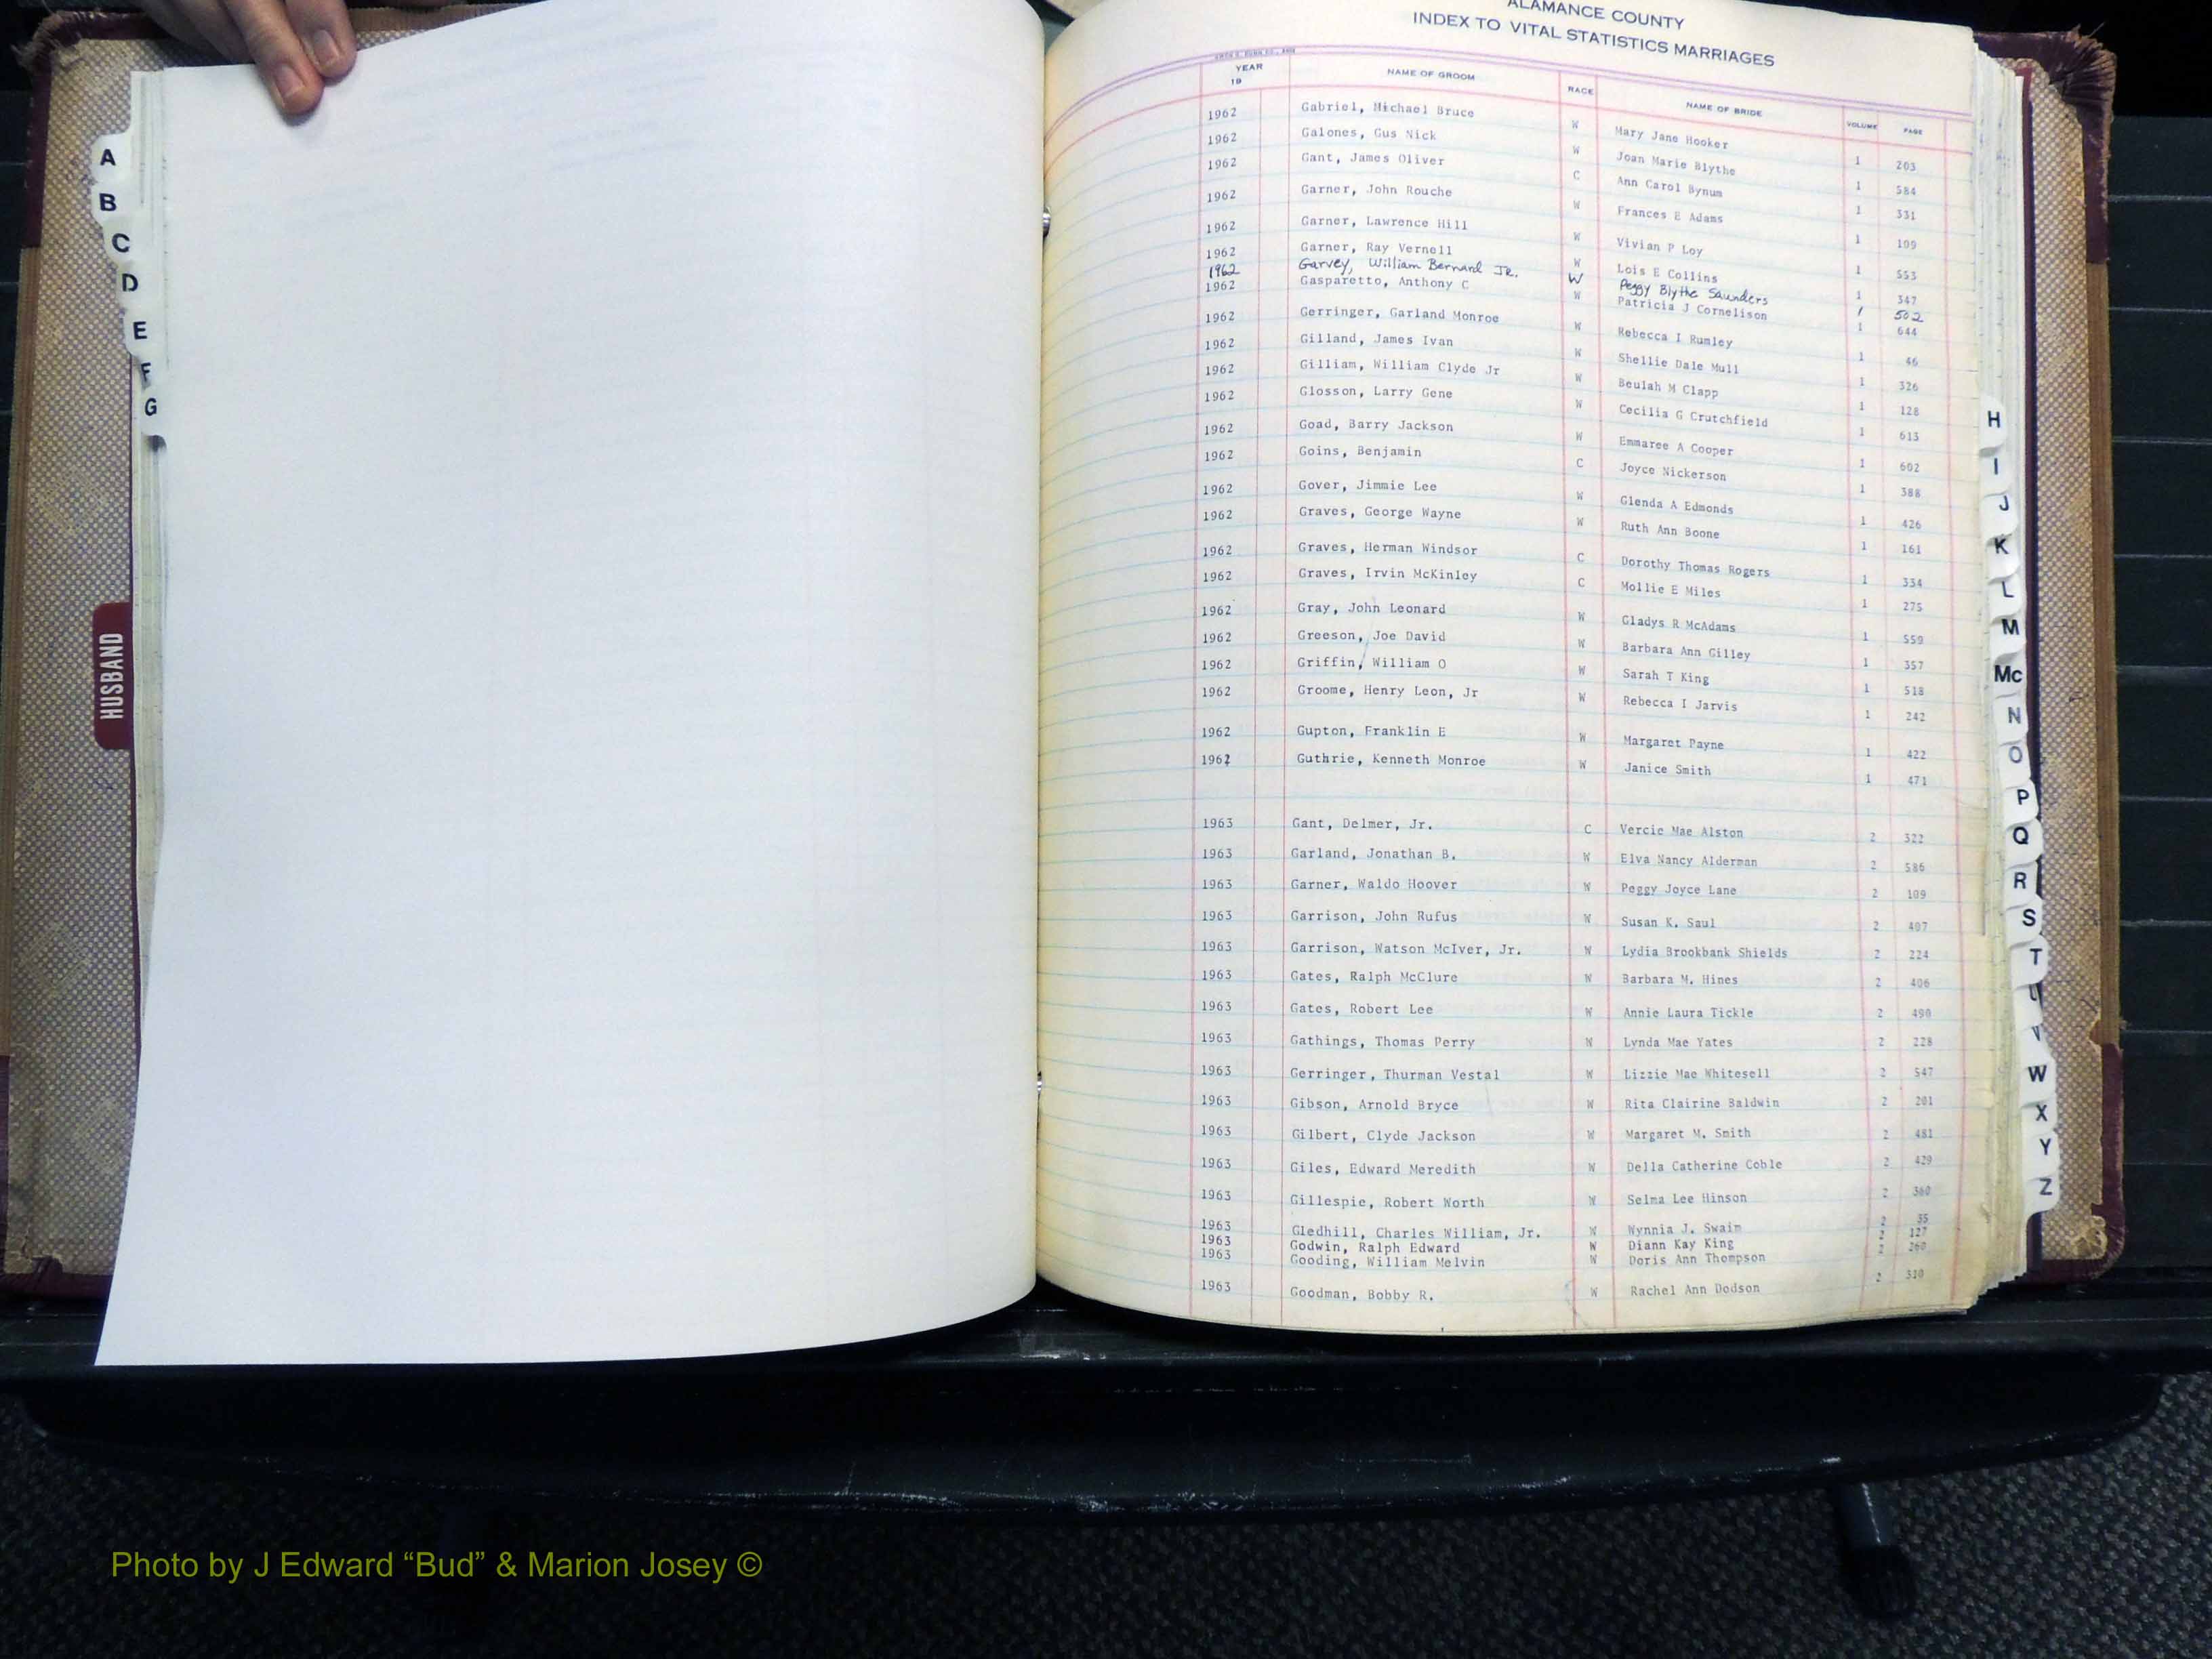 ALAMANCE COUNTY
INDEX TO VITAL STATISTICS MARRIAGES
YEAR 19 NAME OF GROOM RACE NAME OF BRIDE VOLUME PAGE
1962 Gabriel, Michael Bruce W Mary Jane Hooker 1 203
1962 Galones, Gus Nick W Joan Marie Blythe 1 584
1962 Gant, James Oliver C Ann Carol Bynum 1 331
1962 Garner, John Rouche W Frances E Adams 1 109
1962 Garner, Lawrence Hill W Vivian P Loy 1 553
1962 Garner, Ray Vernell W Lois E Collins 1 347
1962 Garvey, William Bernard Jr. W Peggy Blythe Saunders 1 502
1962 Gasparetto, Anthony C W Patricia J Cornelison 1 644
1962 Gerringer, Garland Monroe W Rebecca I Rumley 1 46
1962 Gilland, James Ivan W Shellie Dale Mull 1 326
1962 Gilliam, William Clyde Jr W Beulah M Clapp 1 128
1962 Glosson, Larry Gene W Cecilia G Crutchfield 1 613
1962 Goad, Barry Jackson W Emmaree A Cooper 1 602
1962 Goins, Benjamin C Joyce Nickerson 1 388
1962 Gover, Jimmie Lee W Glenda A Edmonds 1 426
1962 Graves, George Wayne W Ruth Ann Boone 1 161
1962 Graves, Herman Windsor C Dorothy Thomas Rogers 1 334
1962 Graves, Irvin McKinley C Mollie E Miles 1 275
1962 Gray, John Leonard W Gladys R McAdams 1 559
1962 Greeson, Joe David W Barbara Ann Gilley 1 357
1962 Griffin, William O W Sarah T King 1 518
1962 Groome, Henry Leon, Jr W Rebecca I Jarvis 1 242
1962 Gupton, Franklin E W Margaret Payne 1 422
1962 Guthrie, Kenneth Monroe W Janice Smith 1 471
1963 Gant, Delmer, Jr. C Vercie Mae Alston 2 322
1963 Garland, Jonathan B. W Elva Nancy Alderman 2 586
1963 Garner, Waldo Hoover W Peggy Joyce Lane 2 109
1963 Garrison, John Rufus W Susan K. Saul 2 407
1963 Garrison, Watson McIver, Jr. W Lydia Brookbank Shields 2 224
1963 Gates, Ralph McClure W Barbara M. Hines 2 406
1963 Gates, Robert Lee W Annie Laura Tickle 2 490
1963 Gathings, Thomas Perry W Lynda Mae Yates 2 228
1963 Gerringer, Thurman Vestal W Lizzie Mae Whitesell 2 547
1963 Gibson, Arnold Bryce W Rita Clairine Baldwin 2 201
1963 Gilbert, Clyde Jackson W Margaret M. Smith 2 481
1963 Giles, Edward Meredith W Della Catherine Coble 2 429
1963 Gillespie, Robert Worth W Selma Lee Hinson 2 360
1963 Gledhill, Charles William, Jr. W Wynnia J. Swaim 2 35
1963 Godwin, Ralph Edward W Diann Kay King 2 127
1963 Gooding, William Melvin W Doris Ann Thompson 2 260
1963 Goodman, Bobby R. W Rachel Ann Dodson 2 310
A
B
C
D
E
F
G
HUSBAND
H
I
J
K
L
M
Mc
N
O
P
Q
R
S
T
U
V
W
X
Y
Z
Photo by J Edward “Bud” & Marion Josey ©